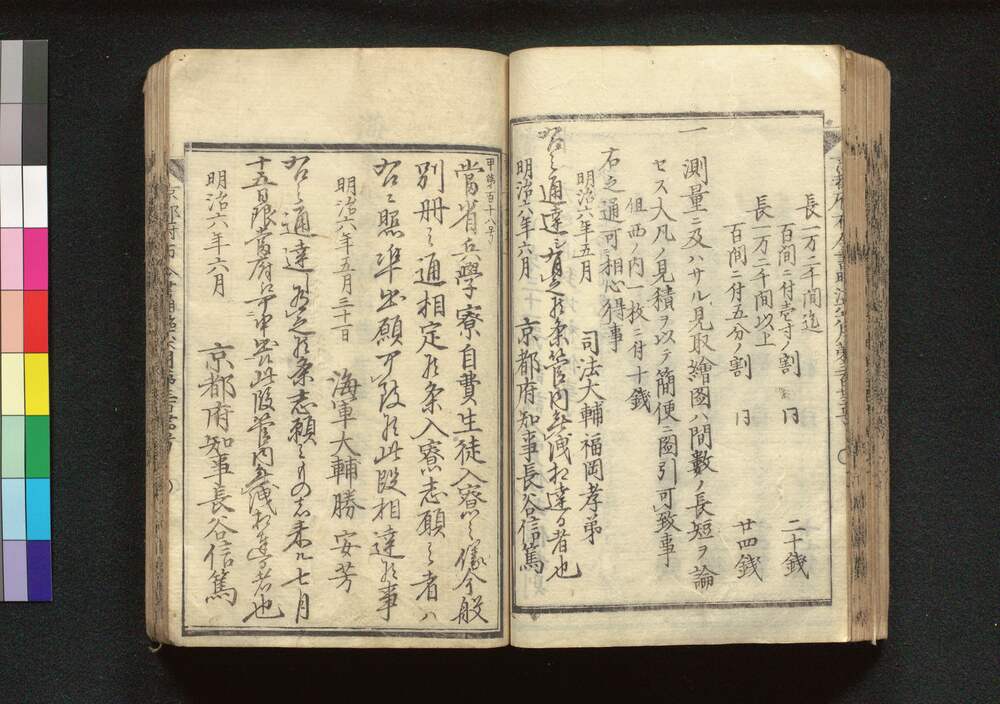 長一万二千間迄
百間ニ付壱寸ノ割 〃 二十錢
長一万二千間以上
百間ニ付五分ノ割 〃 廿四錢
一 測量ニ及ハサル見取繪圖ハ間數ノ長短ヲ論
セス大凡ノ見積ヲ以テ簡便ニ圖引可致事
但西ノ内一枚ニ付十錢
右之通可相心得事
明治六年五月 司法大輔福岡孝弟
右之通達シ有之候条管内無洩相達る者也
明治六年六月 京都府知事長谷信篤
甲第百十八号
當省兵學寮自費生徒入寮之儀今般
別冊之通相定候条入寮志願之者ハ
右ニ照準出願可致候此段相達候事
明治六年五月三十一日 海軍大輔勝安芳
右之通達有之候条志願之もの者来ル七月
十五日限當府江可申出此段管内無洩相達る者也
明治六年六月 京都府知事長谷信篤